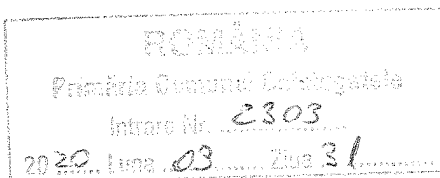 ROMÂNIA
Primăria Comunei
Intrare Nr. 2303
2020 Luna 03 Ziua 31